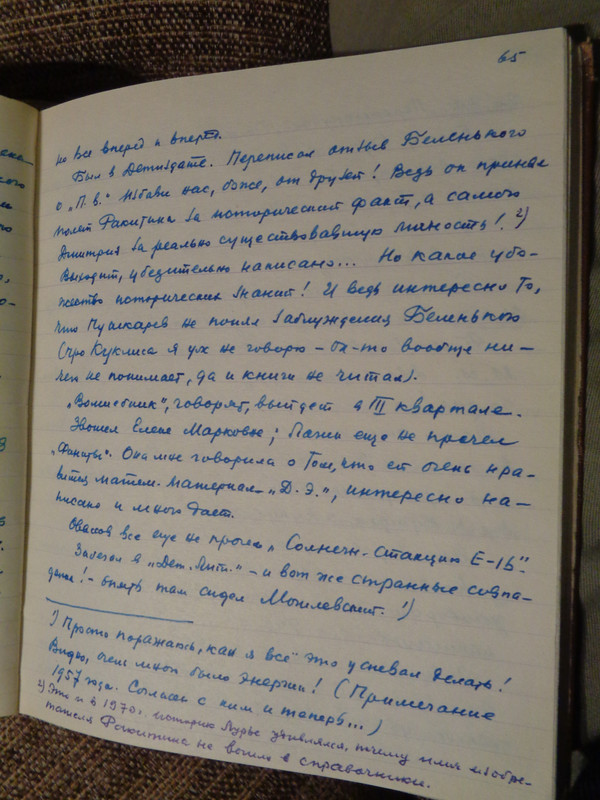 65
но все вперед и вперед.
Был в Детиздате. Переписал отзыв Беленького
о „П. в.“ Избави нас, боже, от друзей! Ведь он принял
полет Ракитина за исторический факт, а самого
Димитрия за реально существовавшую личность! 2)
Выходит, убедительно написано... Но какое убо-
жество исторических знаний! И ведь интересно то,
что Пушкарев не понял заблуждения Беленького
(про Куклиса я уж не говорю – он-то вообще ни-
чего не понимает, да и книги не читал).
„Волшебник“, говорят, выйдет в III квартале.
Звонил Елене Марковне; Лагин еще не прочел
Она мне говорила о том, что ей очень нра-
вится матем. материал „Д. Э.“, интересно на-
писано и много дает.
все еще не прочел „Солнечн. Станцию
Заходил в „Дет. Лит.“ – и вот же странные совпа-
дения! – опять там сидел Могилевский. 1)
1) Просто поражаюсь, как я всё это успевал делать!
Видно, очень много было энергии! (Примечание
1957 года. Согласен с ним и теперь...)
2) Это и в 1970 г. удивлялся, почему имя изобре-
тателя Ракитина не вошло в справочники.